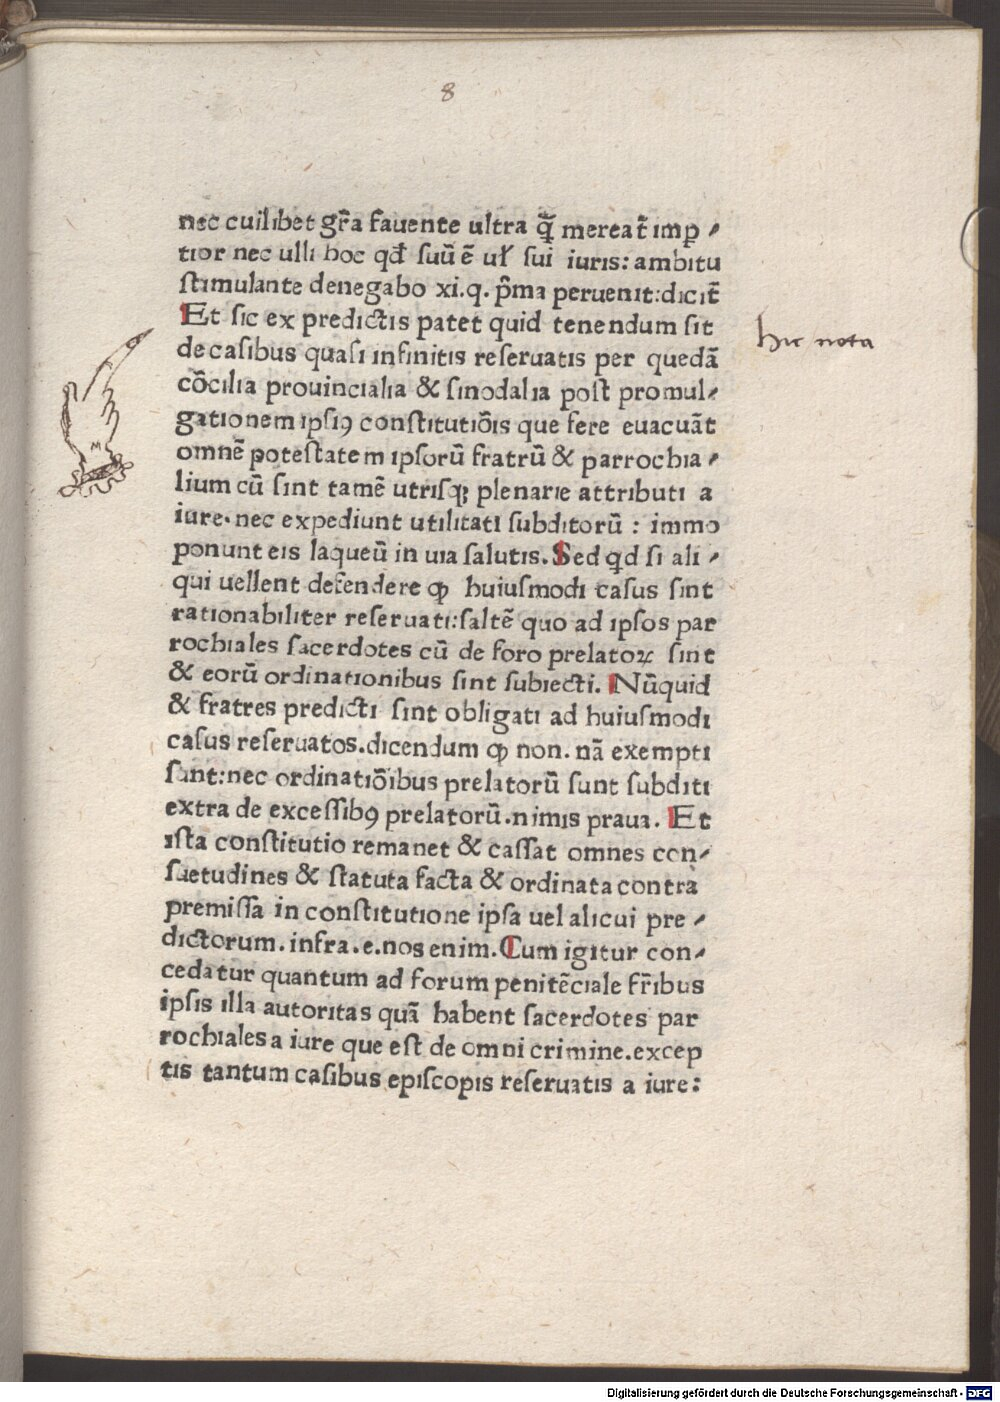 8
nec cuilibet gr̄a fauente ultra q̄ mereat̄ imp̱⸗
tior nec ulli hoc qđ suū ē uł sui iuris: ambitu
stimulante denegabo xi.q. p̄ma peruenit:dicit̄
Et sic ex predictis patet quid tenendum sit
de casibus quasi infinitis reseruatis per quedā
cōcilia prouincialia & sinodalia post promul⸗
gationem ipsiꝯ constitutiōis que fere euacuāt
omnē potestatem ipsorū fratrū & parrochia⸗
lium cū sint tamē utrisqꝫ plenarie attributi a
iure. nec expediunt utilitati subditorū : immo
ponunt eis laqueū in uia salutis. Sed qđ si ali⸗
qui uellent defendere ꝙ huiusmodi casus sint
rationabiliter reseruati:saltē quo ad ipsos par
rochiales sacerdotes cū de foro prelatoꝝ sint
& eorū ordinationibus sint subiecti. Nūquid
& fratres predicti sint obligati ad huiusmodi
casus reseruatos.dicendum ꝙ non. nā exempti
sunt:nec ordinatiōibus prelatorū sunt subditi
extra de excessibꝯ prelatorū.nimis praua. Et
ista constitutio remanet & cassat omnes con⸗
suetudines & statuta facta & ordinata contra
premissa in constitutione ipsa uel alicui pre⸗
dictorum. infra.e.nos enim. Cum igitur con⸗
cedatur quantum ad forum penitēciale fr̄ibus
ipsis illa autoritas quā habent sacerdotes par
rochiales a iure que est de omni crimine.excep
tis tantum casibus episcopis reseruatis a iure:
hic nota
Digitalisierung gefördert durch die Deutsche Forschungsgemeinschaft - DFG